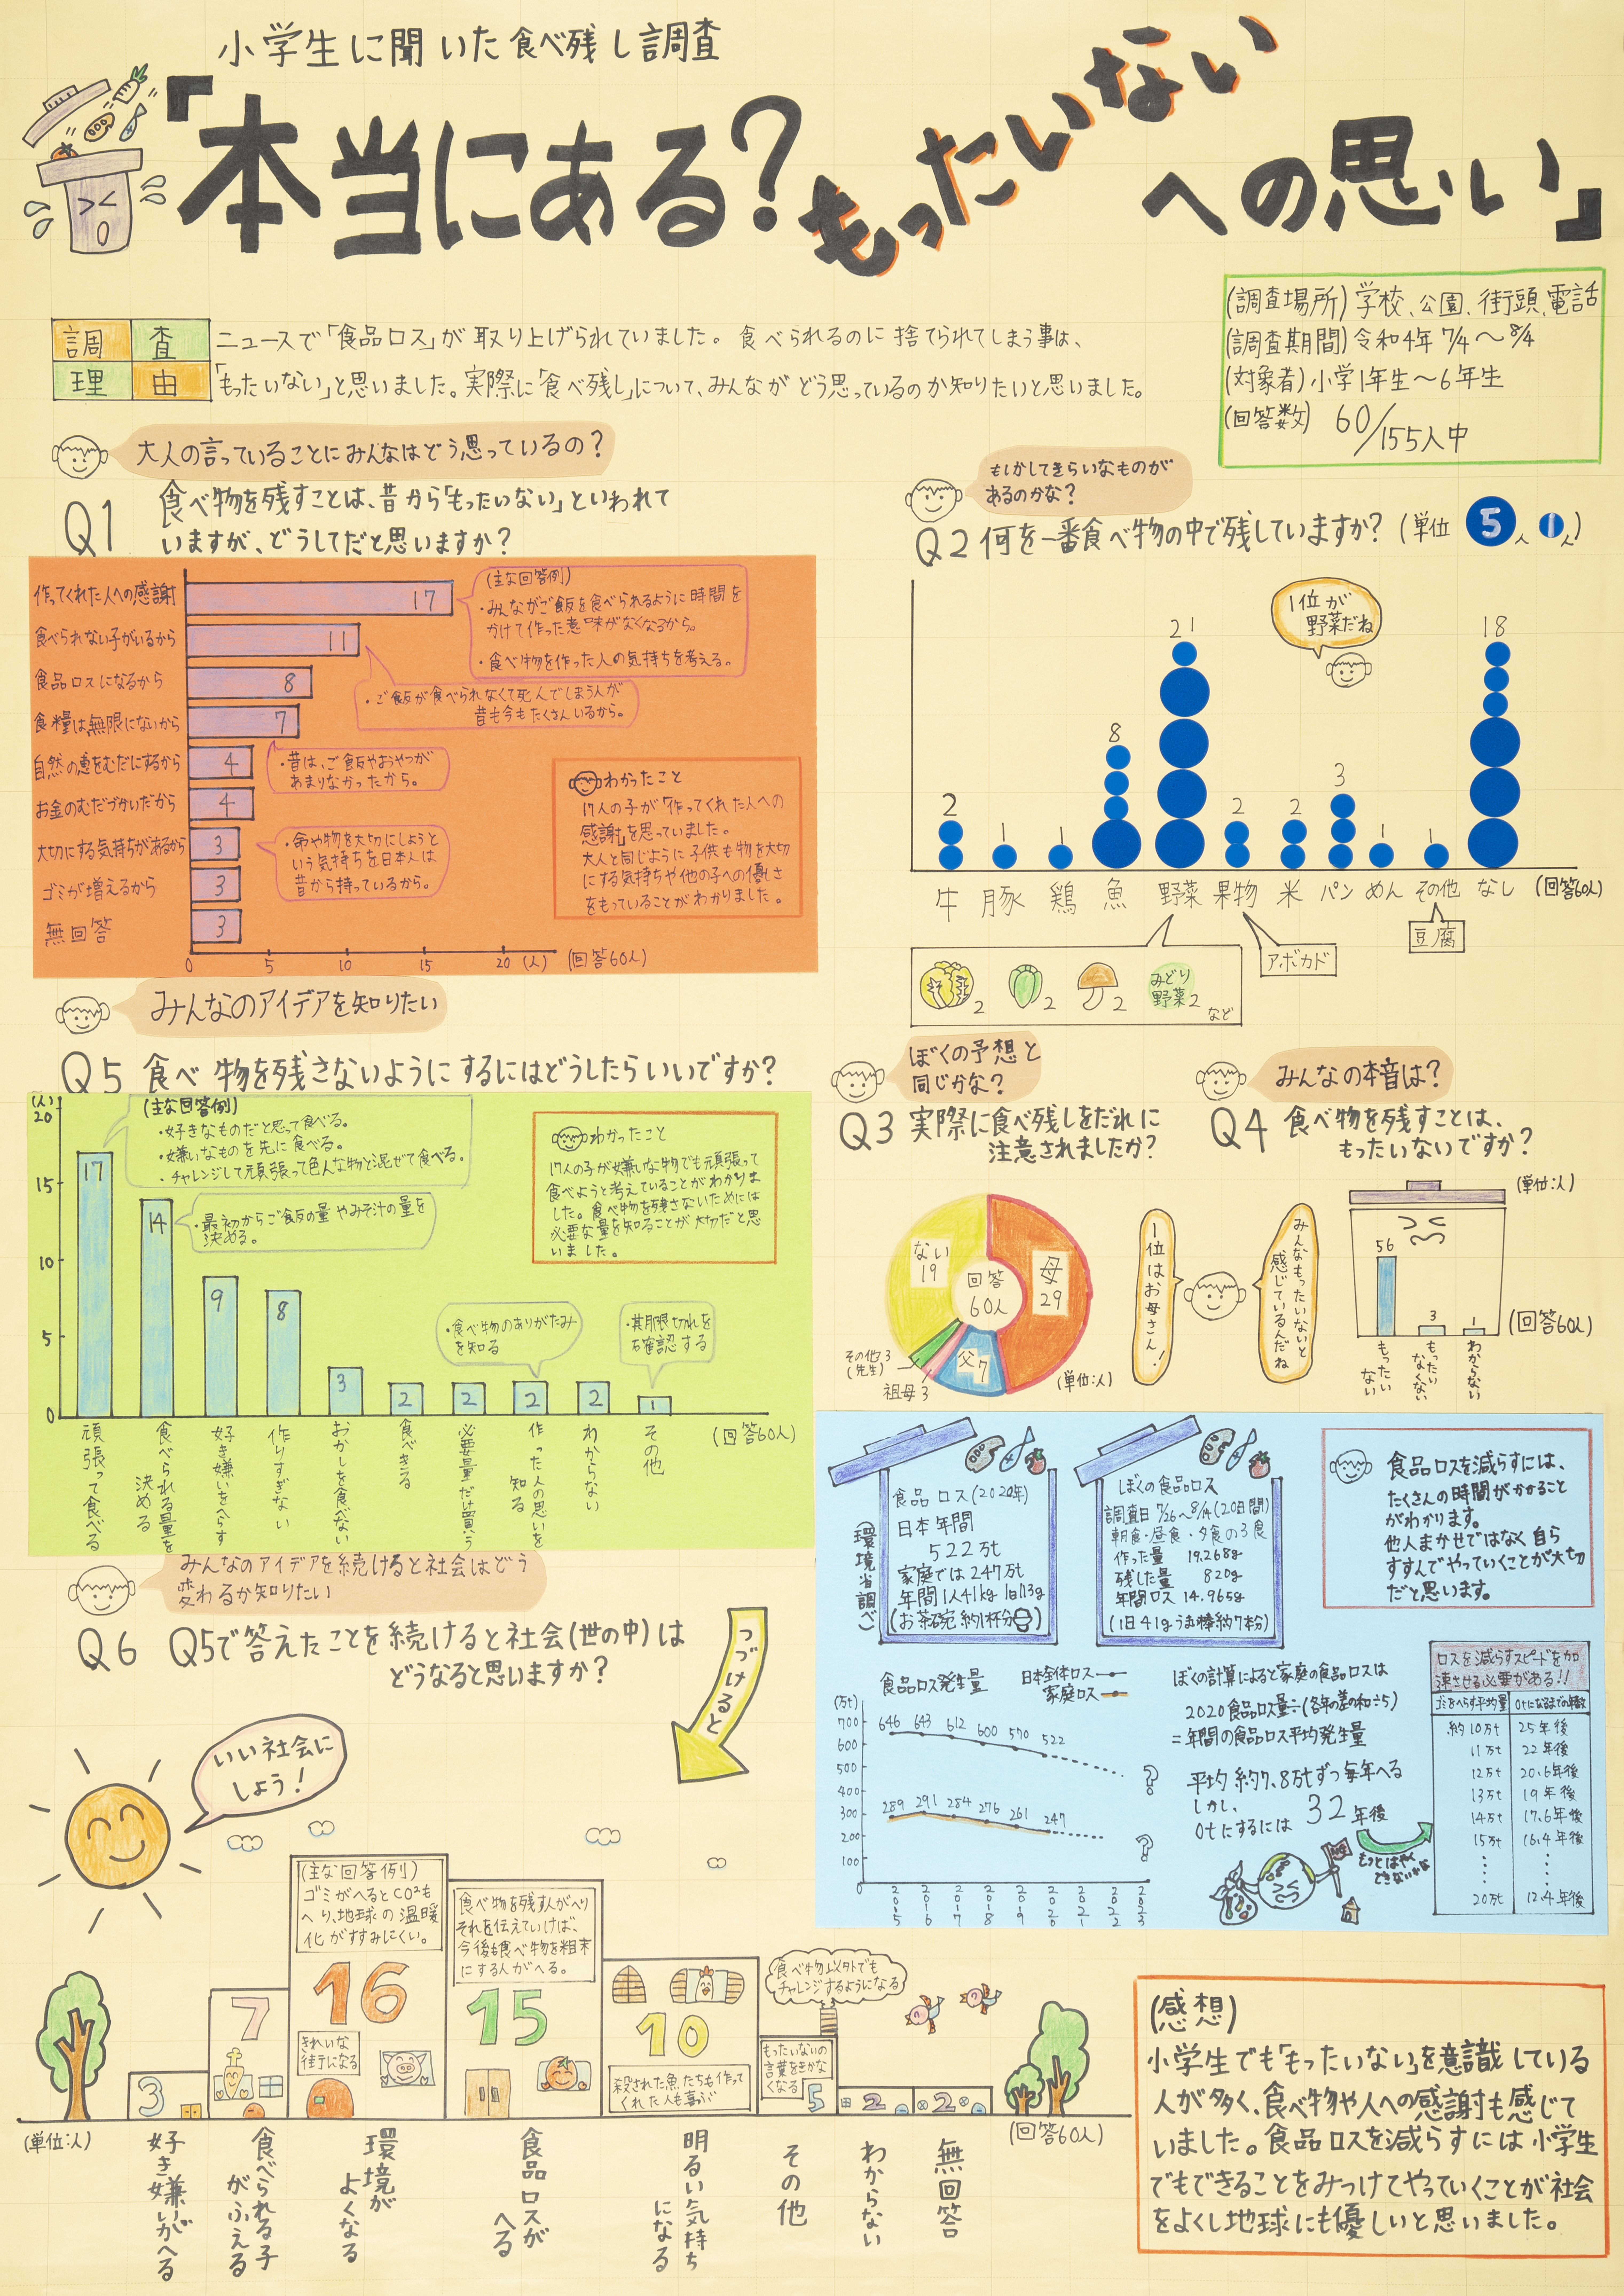 小学生に聞いた食べ残し調査
「本当にある?もったいないへの思い」
(調査場所) 学校、公園、街頭、電話
(調査期間) 令和4年 7/4〜8/4
(対象者) 小学1年生〜6年生
(回答数) 60/155人中
調査理由
ニュースで「食品ロス」が取り上げられていました。食べられるのに捨てられてしまう事は、
「もったいない」と思いました。実際に「食べ残し」について、みんながどう思っているのか知りたいと思いました。
大人の言っていることにみんなはどう思っているの?
Q1 食べ物を残すことは、昔から「もったいない」といわれて
いますが、どうしてだと思いますか?
作ってくれた人への感謝 17
食べられない子がいるから 11
食品ロスになるから 8
食糧は無限にないから 7
自然の恵をむだにするから 4
お金のむだづかいだから 4
大切にする気持ちがあるから 3
ゴミが増えるから 3
無回答 3
0 5 10 15 20 (人) (回答60人)
(主な回答例)
・みんながご飯を食べられるように時間を
かけて作った意味がなくなるから。
・食べ物を作った人の気持ちを考える。
・ご飯が食べられなくて死んでしまう人が
昔も今もたくさんいるから。
・昔は、ご飯やおやつが
あまりなかったから。
・命や物を大切にしようと
いう気持ちを日本人は
昔から持っているから。
わかったこと
17人の子が「作ってくれた人への
感謝」を思っていました。
大人と同じように子供も物を大切
にする気持ちや他の子への優しさ
をもっていることがわかりました。
もしかしてきらいなものが
あるのかな?
Q2 何を一番食べ物の中で残していますか? (単位 5人 1人)
1位が
野菜だね
2 1 1 8 21 2 2 3 1 1 18
牛 豚 鶏 魚 野菜 果物 米 パン めん その他 なし (回答60人)
2 2 2 みどり野菜2 など
アボカド
豆腐
みんなのアイデアを知りたい
Q5 食べ物を残さないようにするにはどうしたらいいですか?
(人)
20
15
10
5
0
17 14 9 8 3 2 2 2 2 1
頑張って食べる
食べられる量を決める
好き嫌いをへらす
作りすぎない
おかしを食べない
食べきる
必要量だけ買う
作った人の思いを知る
わからない
その他
(回答60人)
(主な回答例)
・好きなものだと思って食べる。
・嫌いなものを先に食べる。
・チャレンジして頑張って色んな物と混ぜて食べる。
・最初からご飯の量やみそ汁の量を
決める。
・食べ物のありがたみ
を知る
・期限切れを
確認する
わかったこと
17人の子が嫌いな物でも頑張って
食べようと考えていることがわかりま
した。食べ物を残さないためには
必要な量を知ることが大切だと思
いました。
ぼくの予想と
同じかな?
Q3 実際に食べ残しをだれに
注意されましたか?
回答
60人
母
29
父7
祖母3
その他3
(先生)
ない
19
(単位:人)
1位はお母さん!
みんなもったいないと
感じているんだね
みんなの本音は?
Q4 食べ物を残すことは、
もったいないですか?
(単位:人)
56 3 1
もったいない
もったいなくない
わからない
(回答60人)
食品ロス(2020年)
日本年間
522万t
家庭では247万t
年間1人41kg 1日113g
(お茶碗約1杯分)
(環境省調べ)
ぼくの食品ロス
調査日 7/26〜8/14(20日間)
朝食・昼食・夕食の3食
作った量 19,268g
残した量 820g
年間ロス 14,965g
(1日41gうまい棒約7本分)
食品ロスを減らすには、
たくさんの時間がかかること
がわかります。
他人まかせではなく自ら
すすんでやっていくことが大切
だと思います。
食品ロス発生量 日本全体ロス
家庭ロス
(万t)
700
600
500
400
300
200
100
0
646 643 612 600 570 522 ?
289 291 284 276 261 247 ?
2015 2016 2017 2018 2019 2020 2021 2022 2023
ぼくの計算によると家庭の食品ロスは
2020食品ロス量÷(各年の差の和÷5)
=年間の食品ロス平均発生量
平均 約7.8万tずつ毎年へる
しかし、
0tにするには 32年後
もっとはやく
できないかな
ロスを減らすスピードを加
速させる必要がある!!
ゴミをへらす平均量 0tになるまでの年数
約10万t 25年後
11万t 22年後
12万t 20.6年後
13万t 19年後
14万t 17.6年後
15万t 16.4年後
20万t 12.4年後
みんなのアイデアを続けると社会はどう
変わるか知りたい
Q6 Q5で答えたことを続けると社会(世の中)は
どうなると思いますか?
つづけると
いい社会に
しよう!
(主な回答例)
ゴミがへるとCO²も
へり、地球の温暖
化がすすみにくい。
16
きれいな
街になる
食べ物を残す人がへり
それを伝えていけば、
今後も食べ物を粗末
にする人がへる。
15
10
殺された魚たちも作って
くれた人も喜ぶ
食べ物以外でも
チャレンジするようになる
もったいないの
言葉をきかな
くなる
5
3 7 2 2
(単位:人)
好き嫌いがへる
食べられる子がふえる
環境がよくなる
食品ロスがへる
明るい気持ちになる
その他
わからない
無回答
(回答60人)
(感想)
小学生でも「もったいない」を意識している
人が多く、食べ物や人への感謝も感じて
いました。食品ロスを減らすには小学生
でもできることをみつけてやっていくことが社会
をよくし地球にも優しいと思いました。